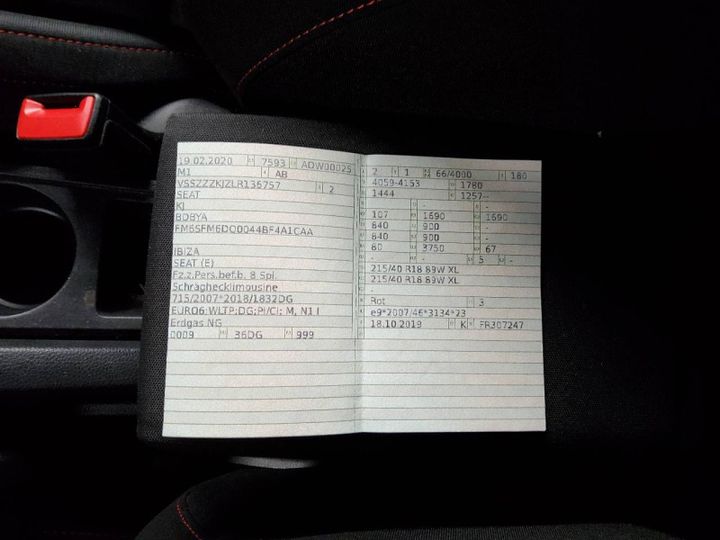 19.02.2020 7593 ADW00025
M1 AB
VSSZZZKJZLR136757 2
SEAT
KJ
BDBYA
FM6SFM6DQ0044BF4A1CAA
IBIZA
SEAT (E)
Fz.z.Pers.bef.b. 8 Spl.
Schräghecklimousine
715/2007*2018/1832DG
EURO6;WLTP;DG;PI/CI; M, N1 I
Erdgas NG
0009 36DG 999
2 1 66/4000 180
4059-4153 1780
1444 1257--
- -
107 1690 1690
840 900 -
840 900 -
80 3750 67
- 5 -
215/40 R18 89W XL
215/40 R18 89W XL
-
Rot 3
e9*2007/46*3134*23
18.10.2019 K FR307247